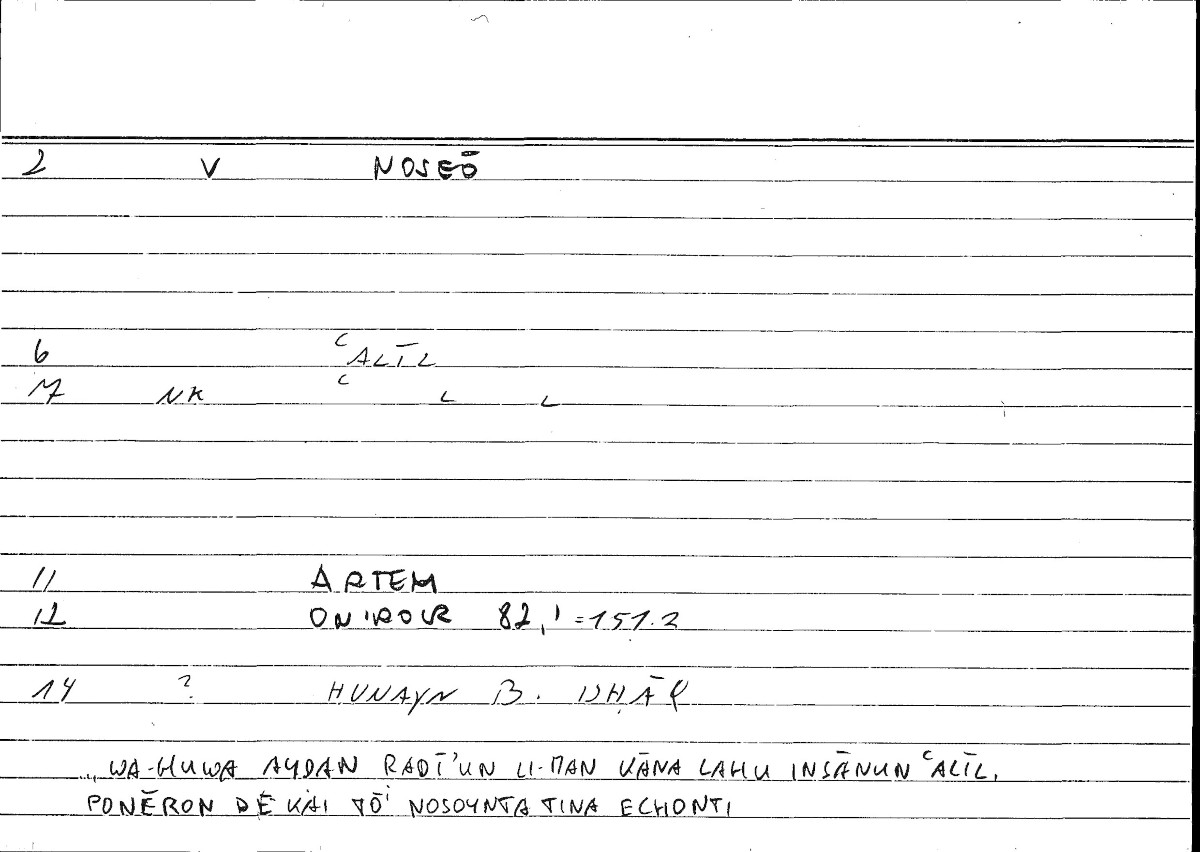 2 V NOSEŌ
6 ʿALĪL
17 NK ʿ L L
11 ARTEM
12 ONIROCR 82,1 = 151.2
14 ? ḤUNAYN B. ISḤĀQ
„WA-HUWA AYḌAN RADĪ'UN LI-MAN KĀNA LAHU INSĀNUN ʿALĪL,
PONĒRON DE KAI TŌⁱ NOSOYNTA TINA ECHONTI